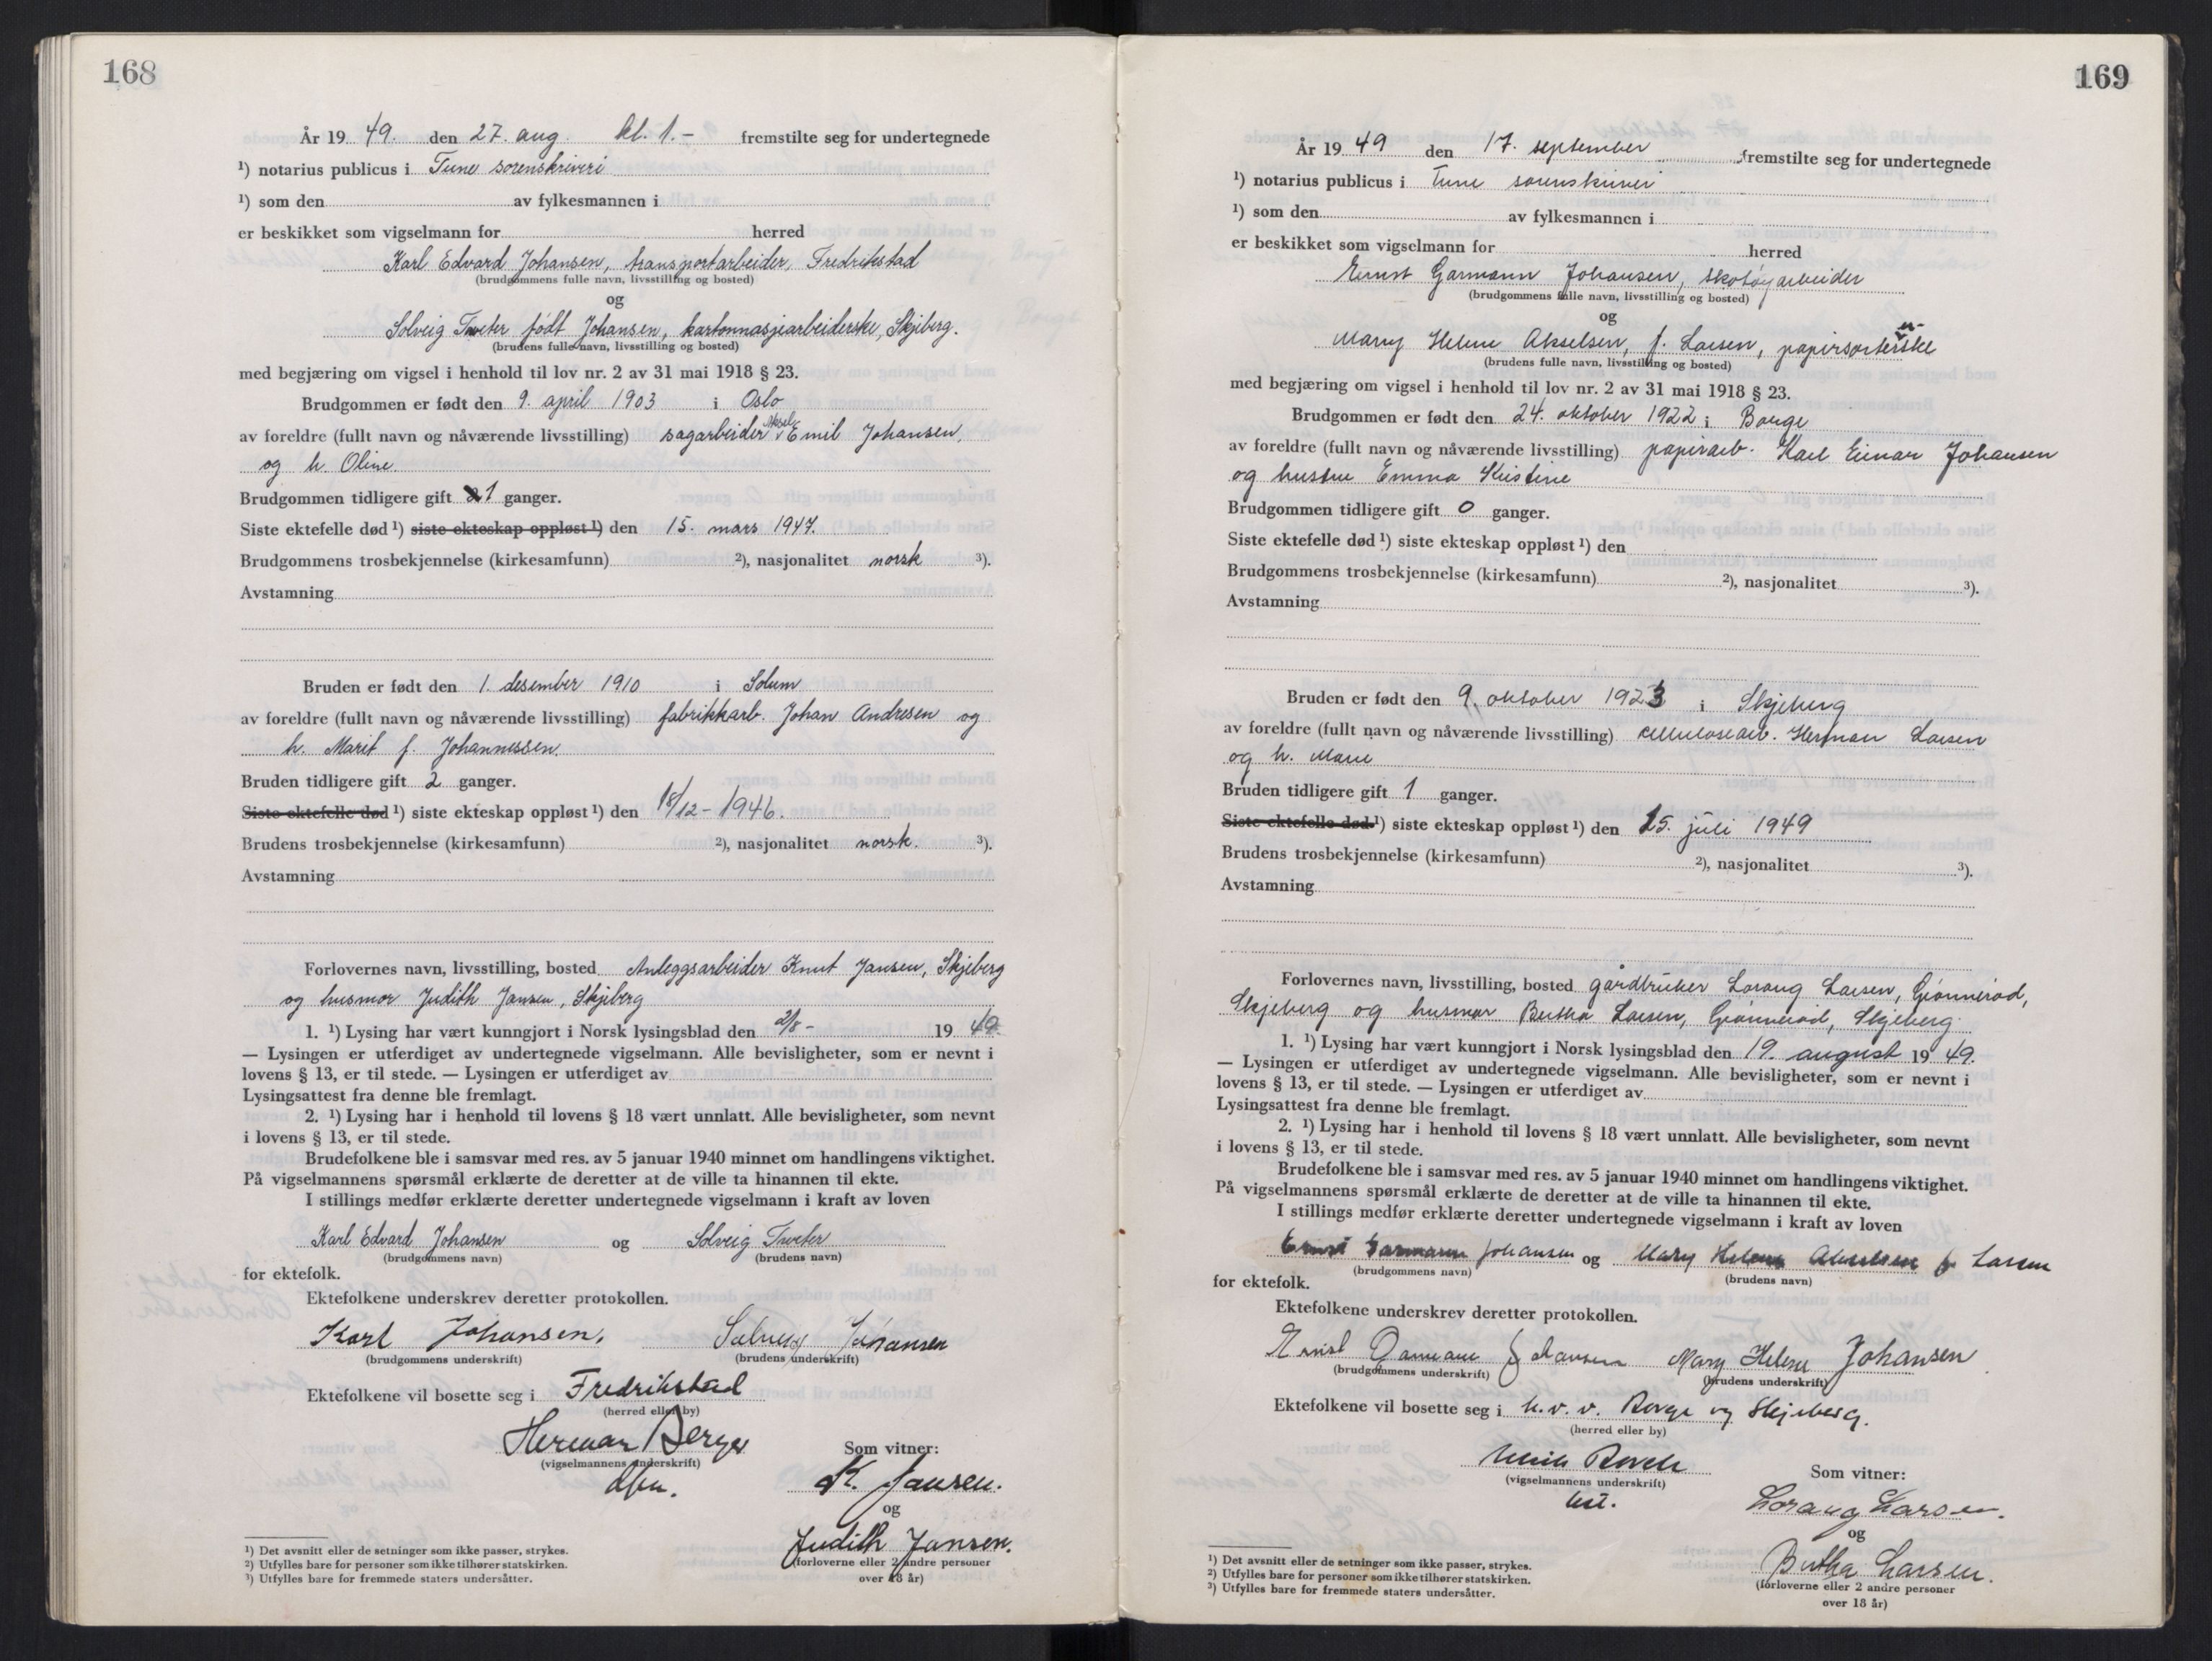 168
År 19 49. den 27. aug. kl. 1.- fremstilte seg for undertegnede
¹) notarius publicus i Tune sorenskriveri
¹) som den av fylkesmannen i
er beskikket som vigselmann for herred
Karl Edvard Johansen, transportarbeider, Fredrikstad
(brudgommens fulle navn, livsstilling og bosted)
og
Solveig Tveter født Johansen, kartonnasjearbeiderske, Skjeberg.
(brudens fulle navn, livsstilling og bosted)
med begjæring om vigsel i henhold til lov nr. 2 av 31 mai 1918 § 23.
Brudgommen er født den 9. april 1903 i Oslo
av foreldre (fullt navn og nåværende livsstilling) sagarbeider Aksel Emil Johansen,
og h. Oline.
Brudgommen tidligere gift 1 ganger.
Siste ektefelle død ¹) siste ekteskap oppløst ¹) den 15. mars 1947.
Brudgommens trosbekjennelse (kirkesamfunn) ²), nasjonalitet norsk ³).
Avstamning
Bruden er født den 1. desember 1910 i Solum
av foreldre (fullt navn og nåværende livsstilling) fabrikkarb. Johan Andresen og
h. Marit f. Johannessen.
Bruden tidligere gift 2 ganger.
Siste ektefelle død ¹) siste ekteskap oppløst ¹) den 18/12 - 1946.
Brudens trosbekjennelse (kirkesamfunn) ²), nasjonalitet norsk. ³).
Avstamning
Forlovernes navn, livsstilling, bosted Anleggsarbeider Knut Jansen, Skjeberg
og husmor Judith Jansen, Skjeberg
1. ¹) Lysing har vært kunngjort i Norsk lysingsblad den 2/8 - 19 49.
— Lysingen er utferdiget av undertegnede vigselmann. Alle bevisligheter, som er nevnt i
lovens § 13, er til stede. — Lysingen er utferdiget av
Lysingsattest fra denne ble fremlagt.
2. ¹) Lysing har i henhold til lovens § 18 vært unnlatt. Alle bevisligheter, som nevnt
i lovens § 13, er til stede.
Brudefolkene ble i samsvar med res. av 5 januar 1940 minnet om handlingens viktighet.
På vigselmannens spørsmål erklærte de deretter at de ville ta hinannen til ekte.
I stillings medfør erklærte deretter undertegnede vigselmann i kraft av loven
Karl Edvard Johansen og Solveig Tveter
(brudgommens navn) (brudens navn)
for ektefolk.
Ektefolkene underskrev deretter protokollen.
Karl Johansen. Solveig Johansen
(brudgommens underskrift) (brudens underskrift)
Ektefolkene vil bosette seg i Fredrikstad
(herred eller by)
Herman Berger
(vigselmannens underskrift)
Som vitner:
K. Jansen.
og
Judith Jansen.
(forloverne eller 2 andre personer
over 18 år)
¹) Det avsnitt eller de setninger som ikke passer, strykes.
²) Utfylles bare for personer som ikke tilhører statskirken.
³) Utfylles bare for fremmede staters undersåtter.
169
År 19 49 den 17. september fremstilte seg for undertegnede
¹) notarius publicus i Tune sorenskriveri
¹) som den av fylkesmannen i
er beskikket som vigselmann for herred
Ernst Garmann Johansen, skotøyarbeider
(brudgommens fulle navn, livsstilling og bosted)
og
Mary Helene Akselsen, f. Larsen, papirsorterske
(brudens fulle navn, livsstilling og bosted)
med begjæring om vigsel i henhold til lov nr. 2 av 31 mai 1918 § 23.
Brudgommen er født den 24. oktober 1922 i Borge
av foreldre (fullt navn og nåværende livsstilling) papirarb. Karl Einar Johansen
og hustru Emma Kristine
Brudgommen tidligere gift 0 ganger.
Siste ektefelle død ¹) siste ekteskap oppløst ¹) den
Brudgommens trosbekjennelse (kirkesamfunn) ²), nasjonalitet ³).
Avstamning
Bruden er født den 9. oktober 1923 i Skjeberg
av foreldre (fullt navn og nåværende livsstilling) cellulosearb. Herman Larsen
og h. Marie
Bruden tidligere gift 1 ganger.
Siste ektefelle død ¹) siste ekteskap oppløst ¹) den 15. juli 1949
Brudens trosbekjennelse (kirkesamfunn) ²), nasjonalitet ³).
Avstamning
Forlovernes navn, livsstilling, bosted gårdbruker Lorang Larsen, Grønnerød,
Skjeberg og husmor Bertha Larsen, Grønnerød, Skjeberg.
1. ¹) Lysing har vært kunngjort i Norsk lysingsblad den 19. august 19 49.
— Lysingen er utferdiget av undertegnede vigselmann. Alle bevisligheter, som er nevnt i
lovens § 13, er til stede. — Lysingen er utferdiget av
Lysingsattest fra denne ble fremlagt.
2. ¹) Lysing har i henhold til lovens § 18 vært unnlatt. Alle bevisligheter, som nevnt
i lovens § 13, er til stede.
Brudefolkene ble i samsvar med res. av 5 januar 1940 minnet om handlingens viktighet.
På vigselmannens spørsmål erklærte de deretter at de ville ta hinannen til ekte.
I stillings medfør erklærte deretter undertegnede vigselmann i kraft av loven
Ernst Garmann Johansen og Mary Helene Akselsen f. Larsen
(brudgommens navn) (brudens navn)
for ektefolk.
Ektefolkene underskrev deretter protokollen.
Ernst Garmann Johansen Mary Helene Johansen
(brudgommens underskrift) (brudens underskrift)
Ektefolkene vil bosette seg i h.v.v. Borge og Skjeberg.
(herred eller by)
(vigselmannens underskrift)
Som vitner:
Lorang Larsen.
og
Bertha Larsen.
(forloverne eller 2 andre personer
over 18 år)
¹) Det avsnitt eller de setninger som ikke passer, strykes.
²) Utfylles bare for personer som ikke tilhører statskirken.
³) Utfylles bare for fremmede staters undersåtter.